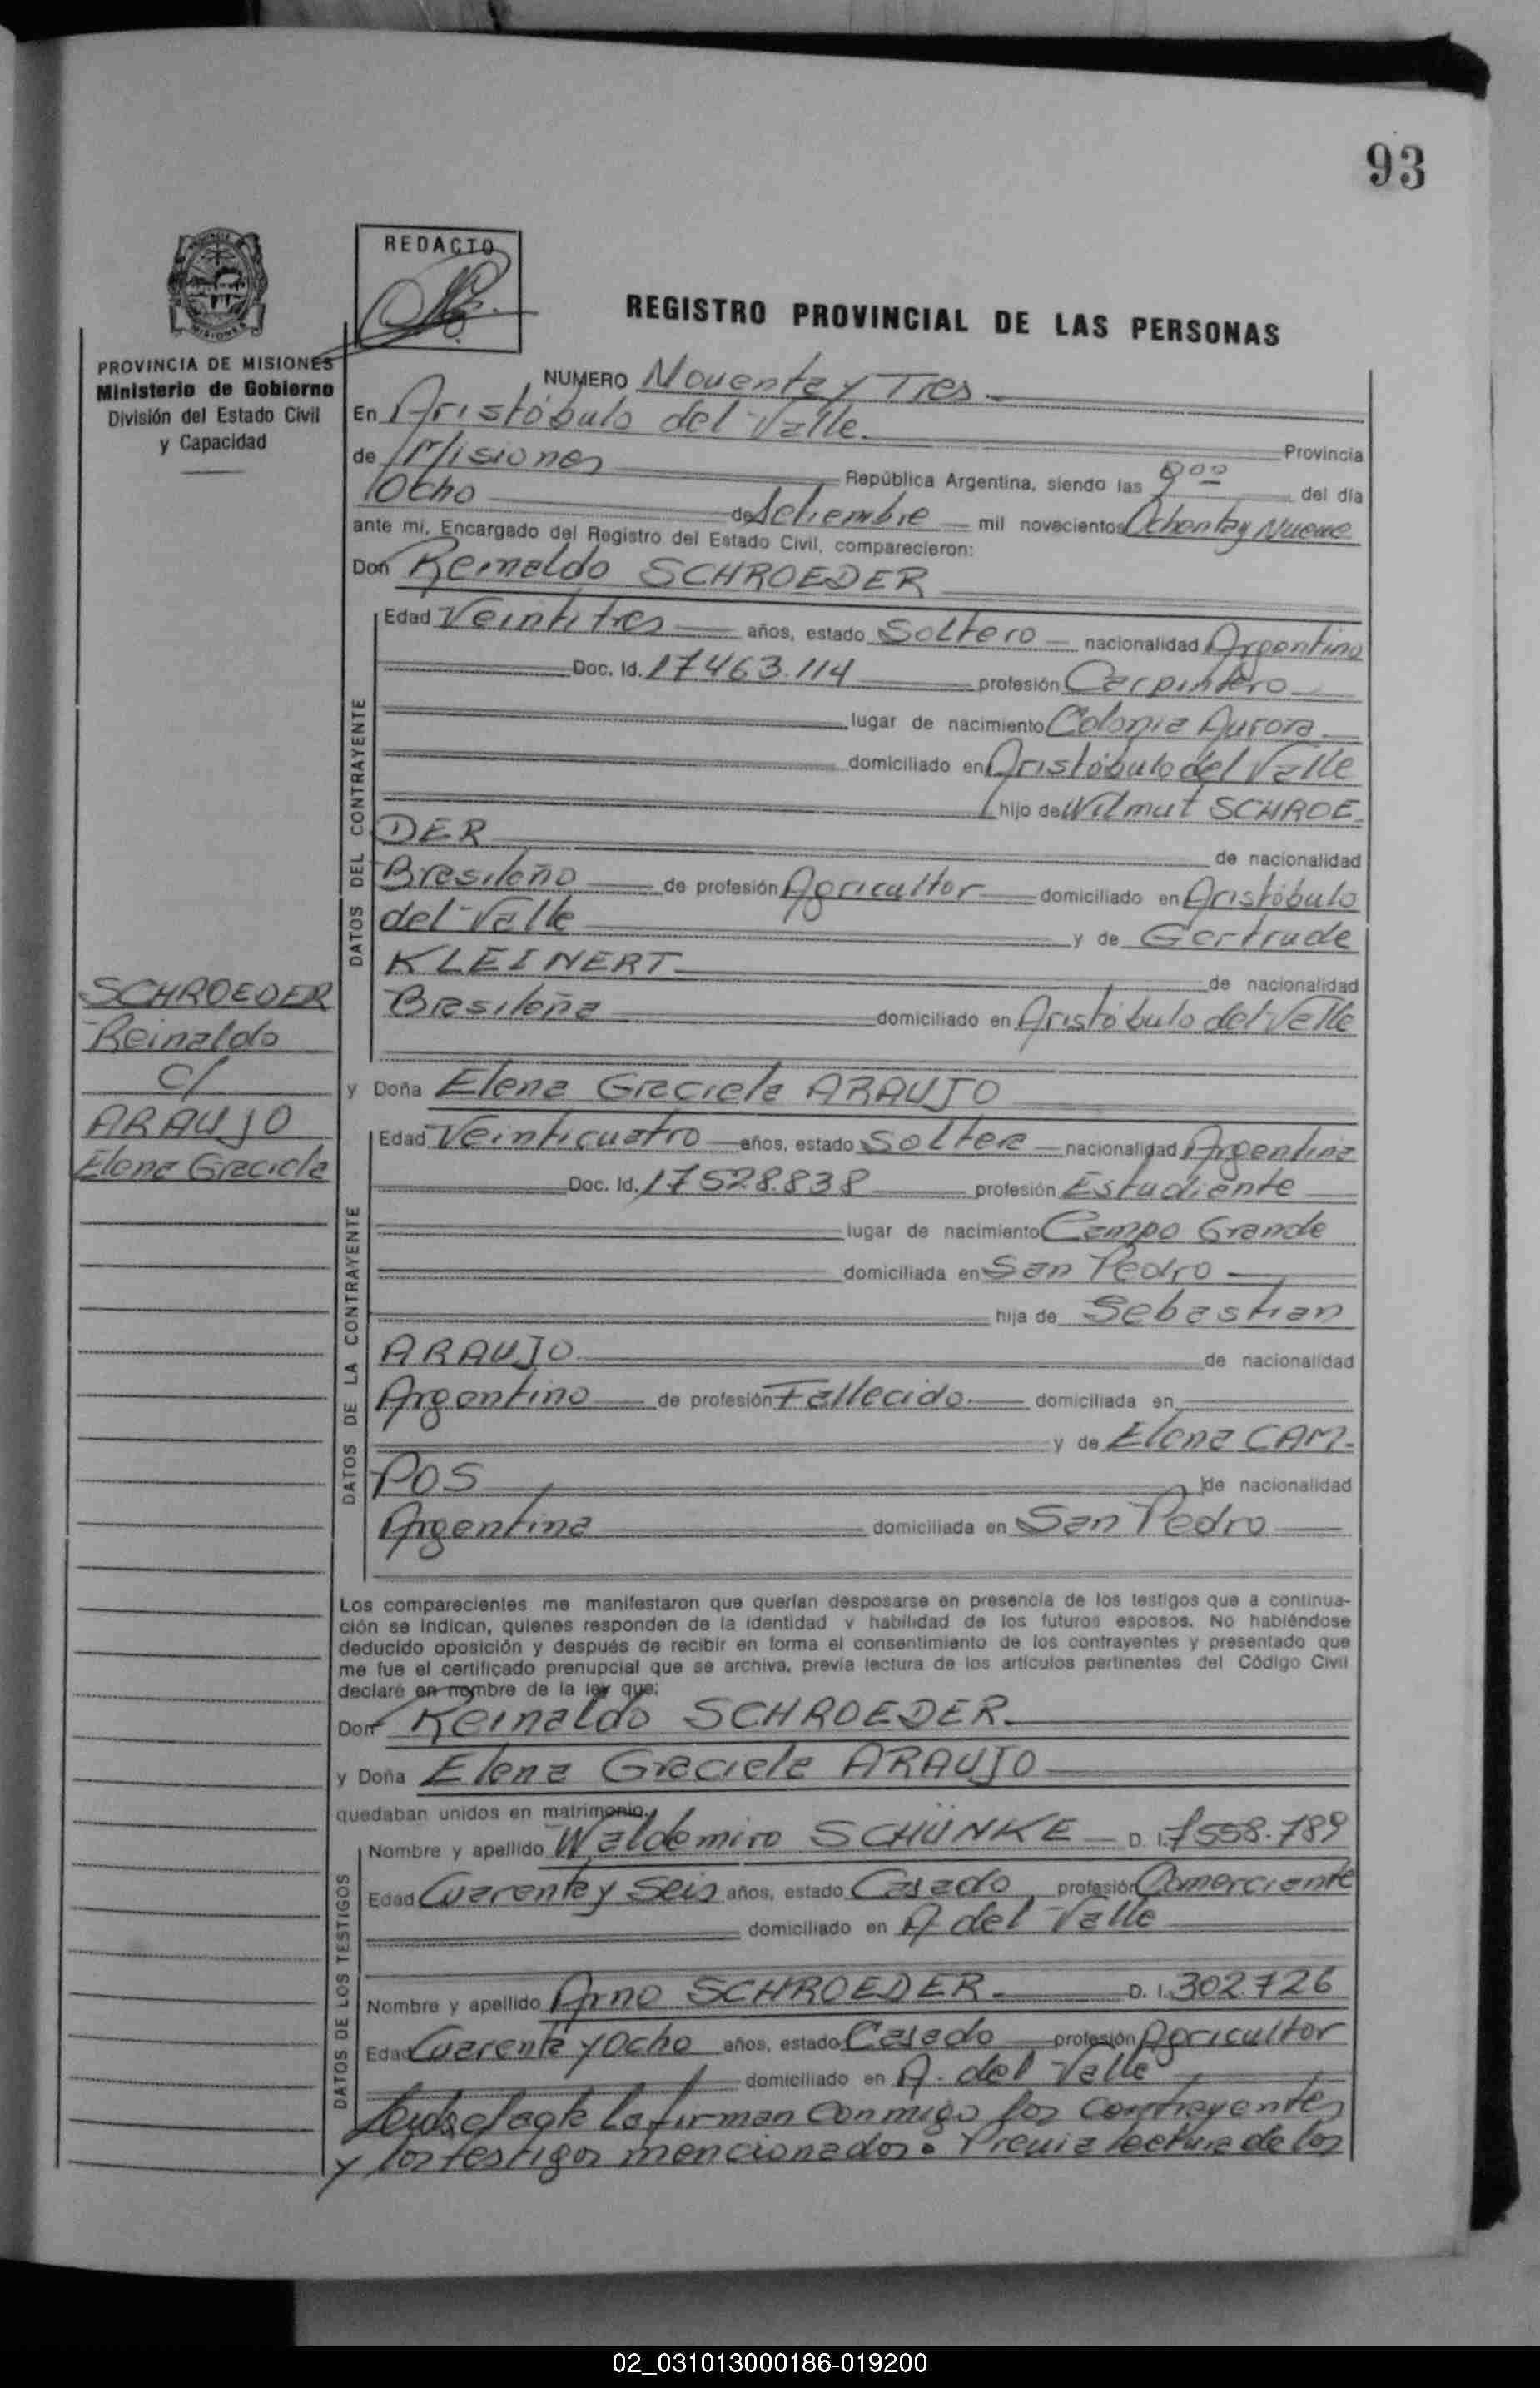 93
REDACTO
PROVINCIA DE MISIONES
Ministerio de Gobierno
División del Estado Civil
y Capacidad
REGISTRO PROVINCIAL DE LAS PERSONAS
NUMERO Noventa y Tres
En Aristóbulo del Valle Provincia
de Misiones República Argentina, siendo las 9 00 del día
Ocho de Setiembre mil novecientos Ochenta y Nueve
ante mí, Encargado del Registro del Estado Civil, comparecieron:
Don Reinaldo SCHROEDER
DATOS DEL CONTRAYENTE
Edad Veintitres años, estado Soltero nacionalidad Argentino
Doc. Id. 17.463.114 profesión Carpintero
lugar de nacimiento Colonia Aurora
domiciliado en Aristóbulo del Valle
hijo de Wilmut SCHROE-
DER de nacionalidad
Brasileño de profesión Agricultor domiciliado en Aristóbulo
del Valle y de Gertrude
KLEINERT de nacionalidad
Brasileña domiciliado en Aristóbulo del Valle
SCHROEDER
Reinaldo
c/
ARAUJO
Elena Graciela
y Doña Elena Graciela ARAUJO
DATOS DE LA CONTRAYENTE
Edad Veinticuatro años, estado Soltera nacionalidad Argentina
Doc. Id. 17528.838 profesión Estudiante
lugar de nacimiento Campo Grande
domiciliada en San Pedro
hija de Sebastian
ARAUJO de nacionalidad
Argentino de profesión Fallecido domiciliada en
y de Elena CAM-
POS de nacionalidad
Argentina domiciliada en San Pedro
Los comparecientes me manifestaron que querían desposarse en presencia de los testigos que a continua-
ción se indican, quienes responden de la identidad y habilidad de los futuros esposos. No habiéndose
deducido oposición y después de recibir en forma el consentimiento de los contrayentes y presentado que
me fue el certificado prenupcial que se archiva, previa lectura de los artículos pertinentes del Código Civil
declaré en nombre de la ley que:
Don Reinaldo SCHROEDER
y Doña Elena Graciela ARAUJO
quedaban unidos en matrimonio.
DATOS DE LOS TESTIGOS
Nombre y apellido Waldemiro SCHÜNKE D. I. 7558.789
Edad Cuarenta y Seis años, estado Casado profesión Comerciante
domiciliado en A del Valle
Nombre y apellido Arno SCHROEDER D. I. 302.726
Edad Cuarenta y Ocho años, estado Casado profesión Agricultor
domiciliado en A. del Valle
el acta la firman conmigo los contrayentes
y los testigos mencionados. Previa lectura de los
02_031013000186-019200